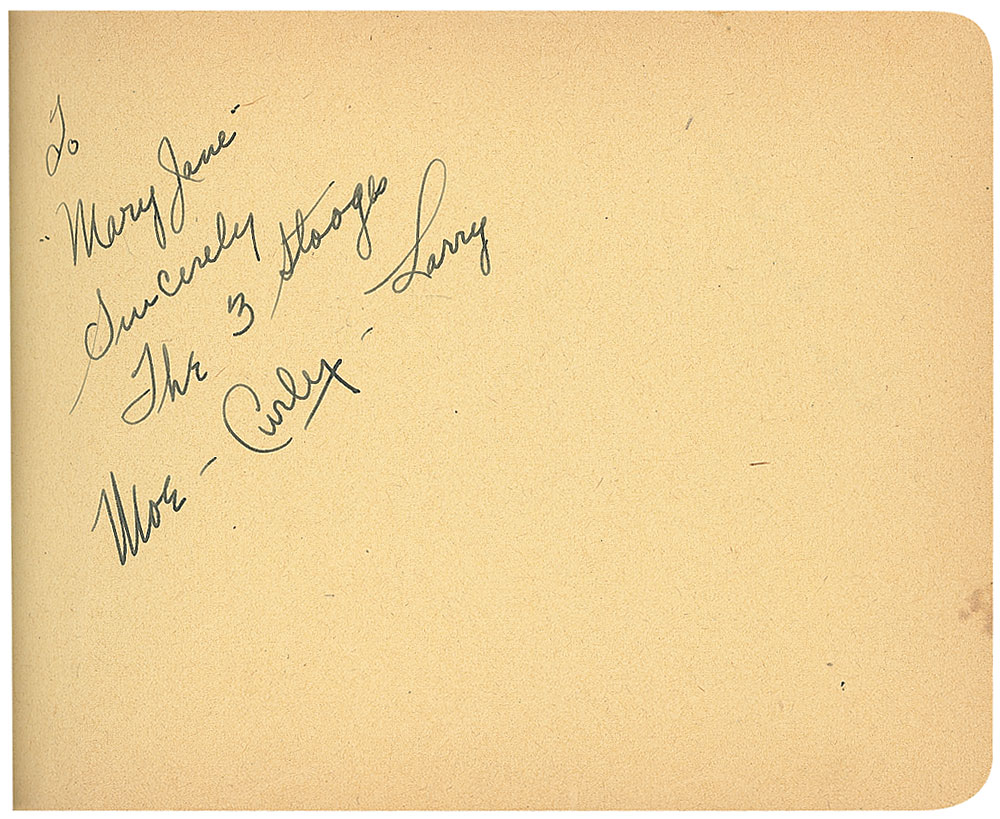 To
"Mary Jane"
Sincerely
The 3 Stooges
Moe - Curley - Larry